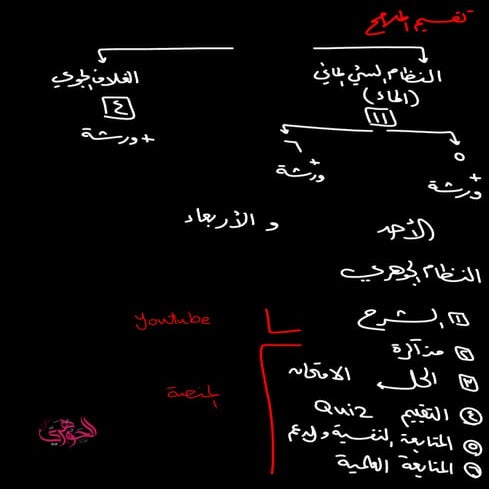 تقسيم المنهج
النظام البيئي المائي
(الماء)
١١
٥
+
ورشة
٦
+
ورشة
الغلاف الجوي
٤
+ ورشة
الأحد و الأربعاء
النظام الجوهري
١ الشرح
٢ مذاكرة
٣ الحل الامتحان
٤ التقييم Quiz
٥ المتابعة النفسية والدعم
٦ المتابعة العلمية
Youtube
المنصة
الجوهري